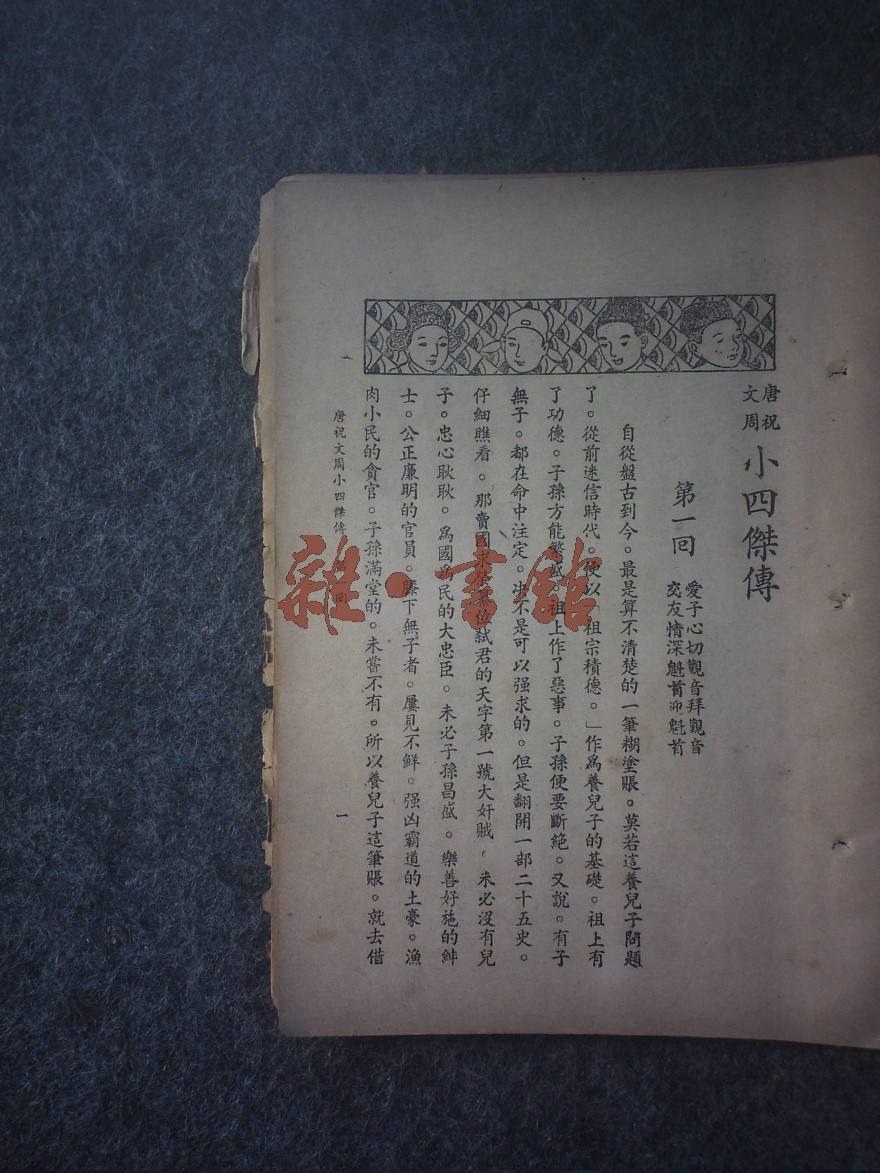 唐祝
文周
小四傑傳
第一回
愛子心切觀音拜觀音
交友情深魁首迎魁首
自從盤古到今。最是算不清楚的一筆糊塗賬。莫若這養兒子問題
了。從前迷信時代。便以「祖宗積德。」作爲養兒子的基礎。祖上有
了功德。子孫方能繁盛。祖上作了惡事。子孫便要斷絕。又說。有子
無子。都在命中注定。决不是可以强求的。但是翻開一部二十五史。
仔細瞧看。那賣國求榮 位弑君的天字第一號大奸賊。未必沒有兒
子。忠心耿耿。爲國爲民的大忠臣。未必子孫昌盛。樂善好施的紳
士。公正廉明的官員。膝下無子者。屢見不鮮。强凶霸道的土豪。漁
肉小民的貪官。子孫滿堂的。未嘗不有。所以養兒子這筆賬。就去借
唐祝文周小四傑傳 第一回
一
雜·書館